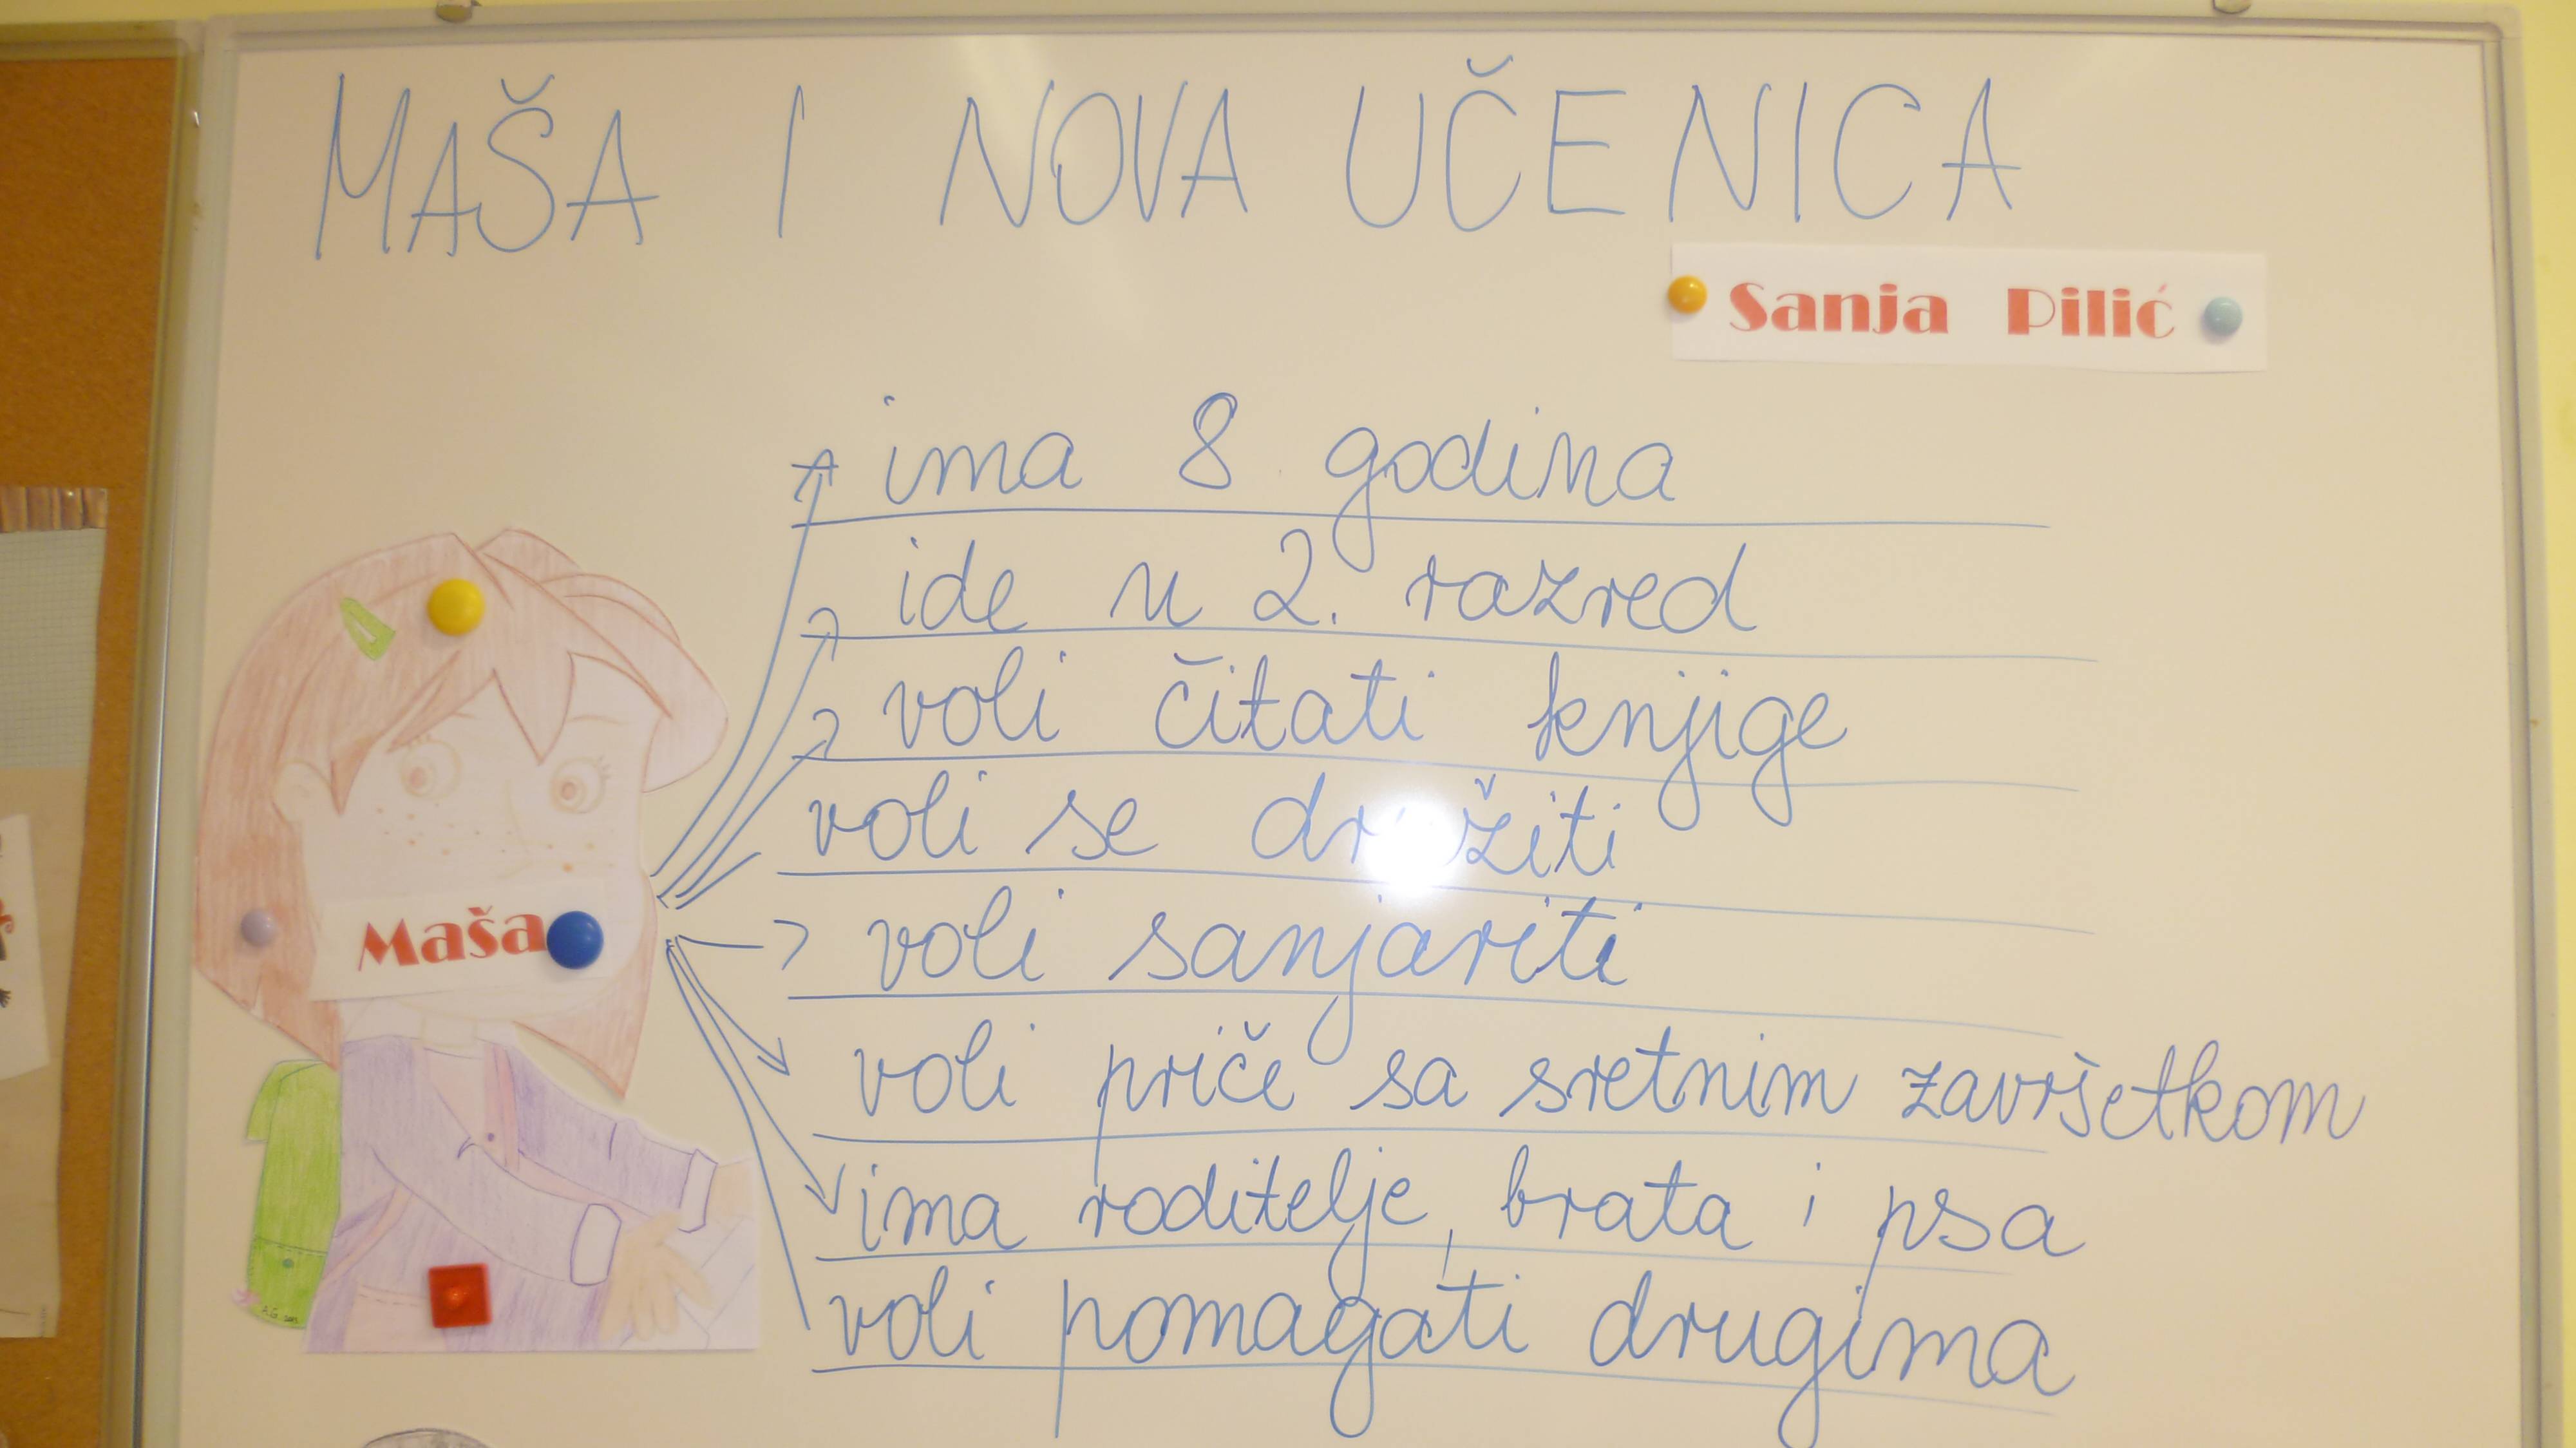 MAŠA I NOVA UČENICA
Sanja Pilić
ima 8 godina
ide u 2. razred
voli čitati knjige
voli se družiti
voli sanjariti
voli priče sa sretnim završetkom
ima roditelje, brata i psa
voli pomagati drugima
Maša